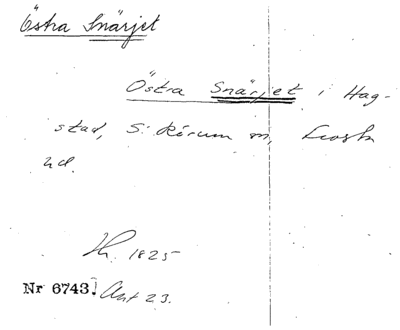 Östra Snärjet
Östra Snärjet i Hag-
stad, S. Rörum sn, Frosta
hd.
Th. 1825
Nr 6743. Akt 23.